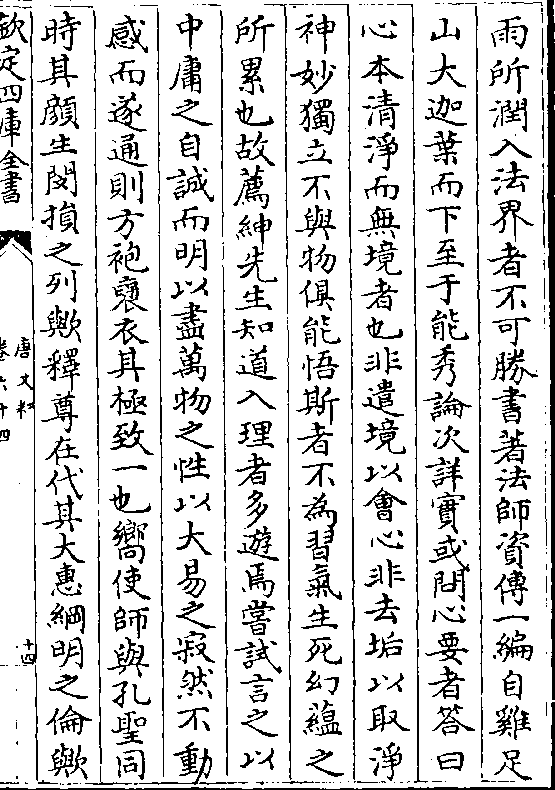 雨所潤入法界者不可勝書著法師資傳一編自雞足
山大迦葉而下至于能秀論次詳實或問心要者答曰
心本清淨而無境者也非遣境以會心非去垢以取淨
神妙獨立不與物俱能悟斯者不為習氣生死幻蘊之
所累也故薦紳先生知道入理者多遊焉嘗試言之以
中庸之自誠而明以盡萬物之性以大易之寂然不動
感而遂通則方袍襃衣其極致一也嚮使師與孔聖同
時其顔生閔損之列歟釋尊在代其大惠綱明之倫歟
欽定四庫全書
唐文粹
卷六十四
十四